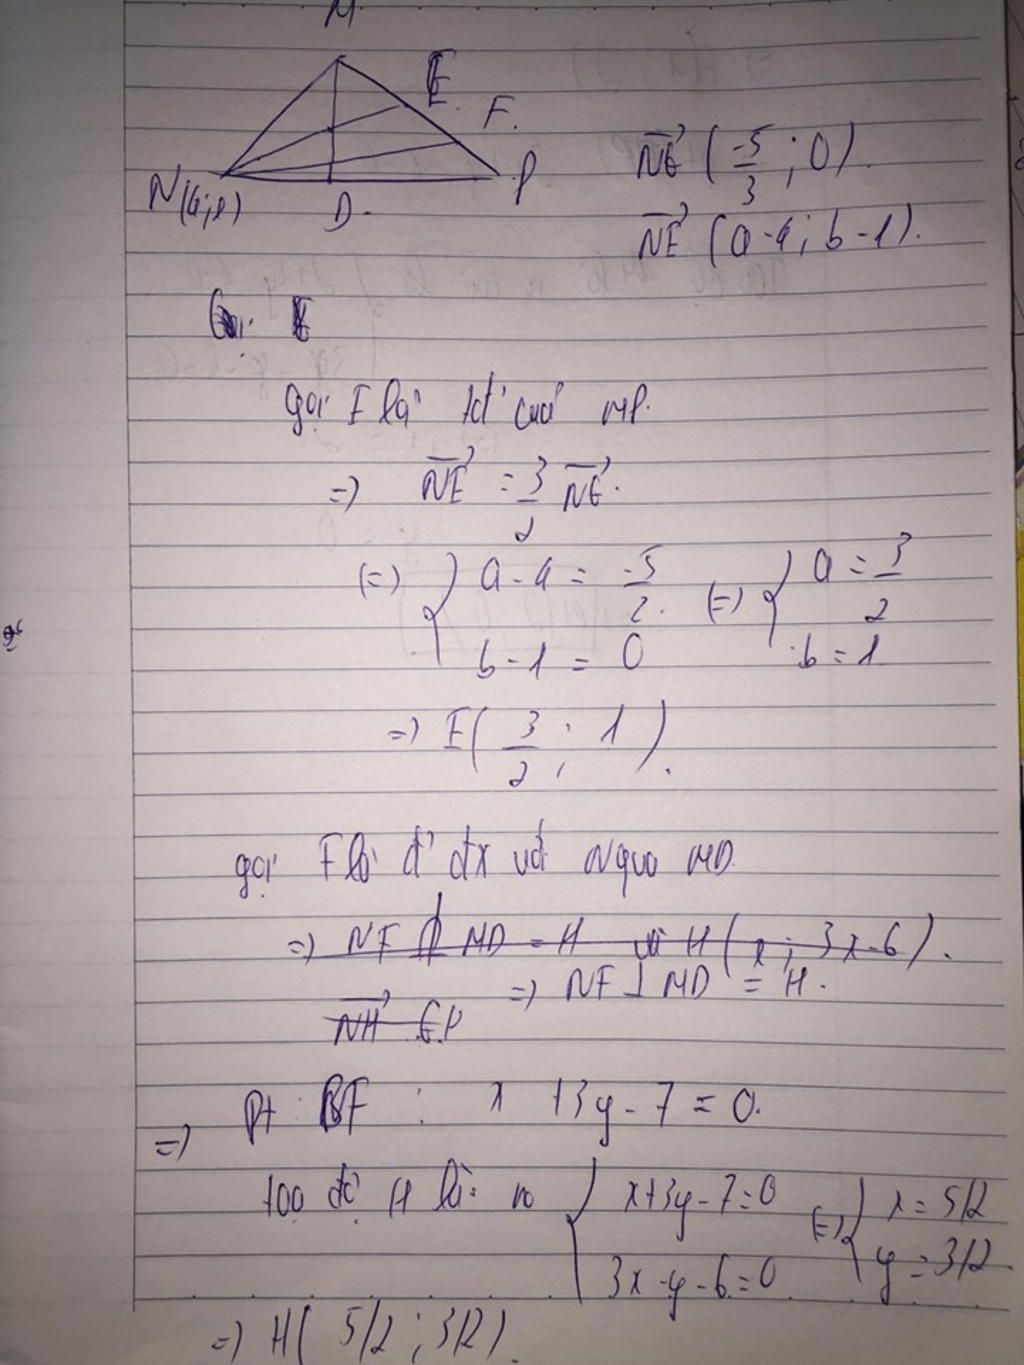 M
E
F.
N(4;1)
D.
P
NG (-5/3 ; 0).
NE (a-4; b-1).
Gọi
gọi E là tđ của MP.
=> NE = 3/2 NG.
(=) { a-4 = -5/2. (=) { a = 3/2
b-1 = 0 b = 1
=> E( 3/2 ; 1 ).
gọi F là đ' đx với N qua MD.
=> NF ∩ MD = H và H ( x ; 3x-6 ).
=> NF ⊥ MD = H.
NH
Pt BF : x +3y - 7 = 0.
=>
toạ độ H là: no { x+3y-7=0 (=) { x = 5/2
3x-y-6=0 y = 3/2.
=> H( 5/2 ; 3/2 ).